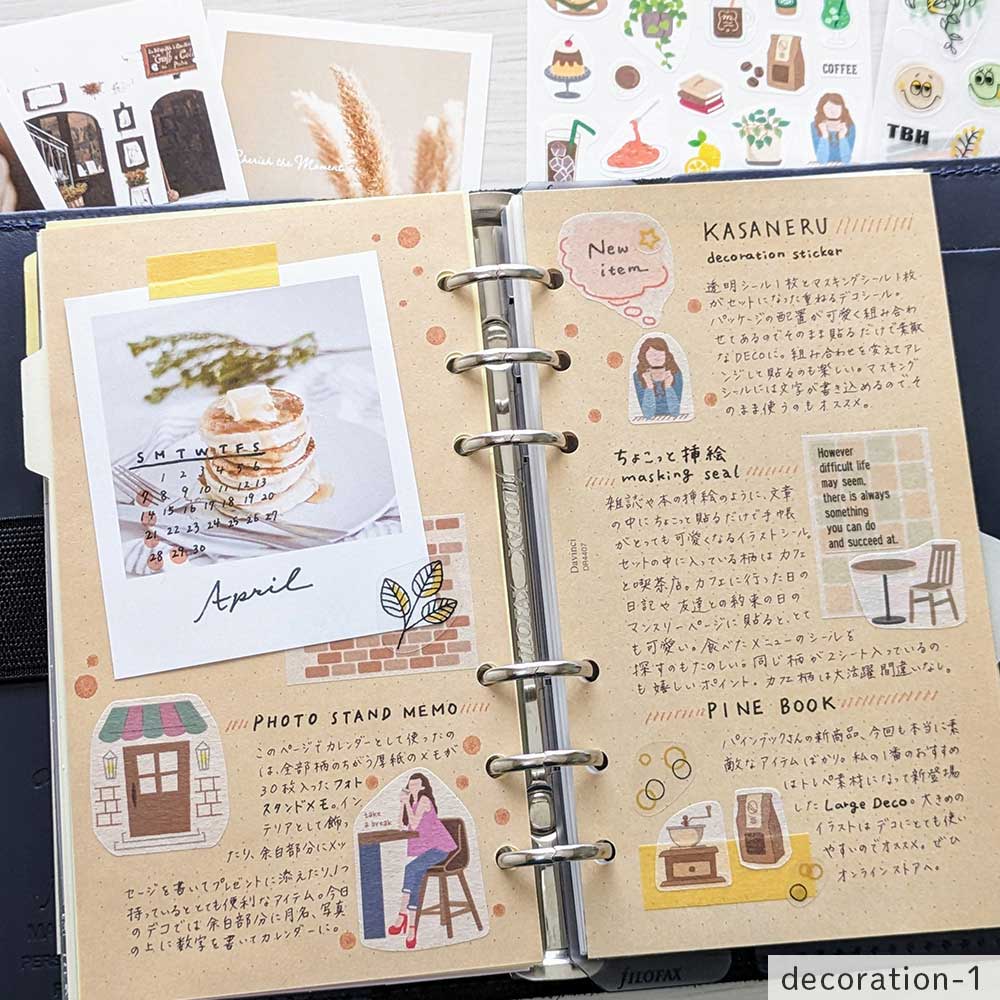 Cherish the Moment
COFFEE
TBH
S M T W T F S
1 2 3 4 5 6
7 8 9 10 11 12 13
14 15 16 17 18 19 20
21 22 23 24 25 26 27
28 29 30
April
PHOTO STAND MEMO
このページでカレンダーとして使ったの
は、全部柄のちがう厚紙のメモが
30枚入ったフォト
スタンドメモ。イン
テリアとして飾っ
たり、余白部分にメッ
セージを書いてプレゼントに添えたり、1つ
持っているととても便利なアイテム。今日
のデコでは余白部分に月名、写真
の上に数字を書いてカレンダーに。
take
a break
New
item
KASANERU
decoration sticker
透明シール1枚とマスキングシール1枚
がセットになった重ねるデコシール。
パッケージの配置が可愛く組み合わ
せてあるのでそのまま貼るだけで素敵
なDECOに。組み合わせを変えてアレ
ンジして貼るのも楽しい。マスキング
シールには文字が書き込めるので、そ
のまま使うのもオススメ。
ちょこっと挿絵
masking seal
雑誌や本の挿絵のように、文章
の中にちょこっと貼るだけで手帳
がとっても可愛くなるイラストシール。
セットの中に入っている柄はカフェ
と喫茶店。カフェに行った日の
日記や友達との約束の日の
マンスリーページに貼ると、とて
も可愛い。食べたメニューのシールを
探すのもたのしい。同じ柄が2シート入っているの
も嬉しいポイント。カフェ柄は大活躍間違いなし。
However
difficult life
may seem,
there is always
something
you can do
and succeed at.
Davinci
DR4407
PINE BOOK
パインブックさんの新商品、今回も本当に素
敵なアイテムばかり。私の1番のおすすめ
はトレペ素材になって新登場
した Large Deco。大きめの
イラストはデコにとても使い
やすいのでオススメ。ぜひ
オンラインストアへ。
FILOFAX
decoration-1